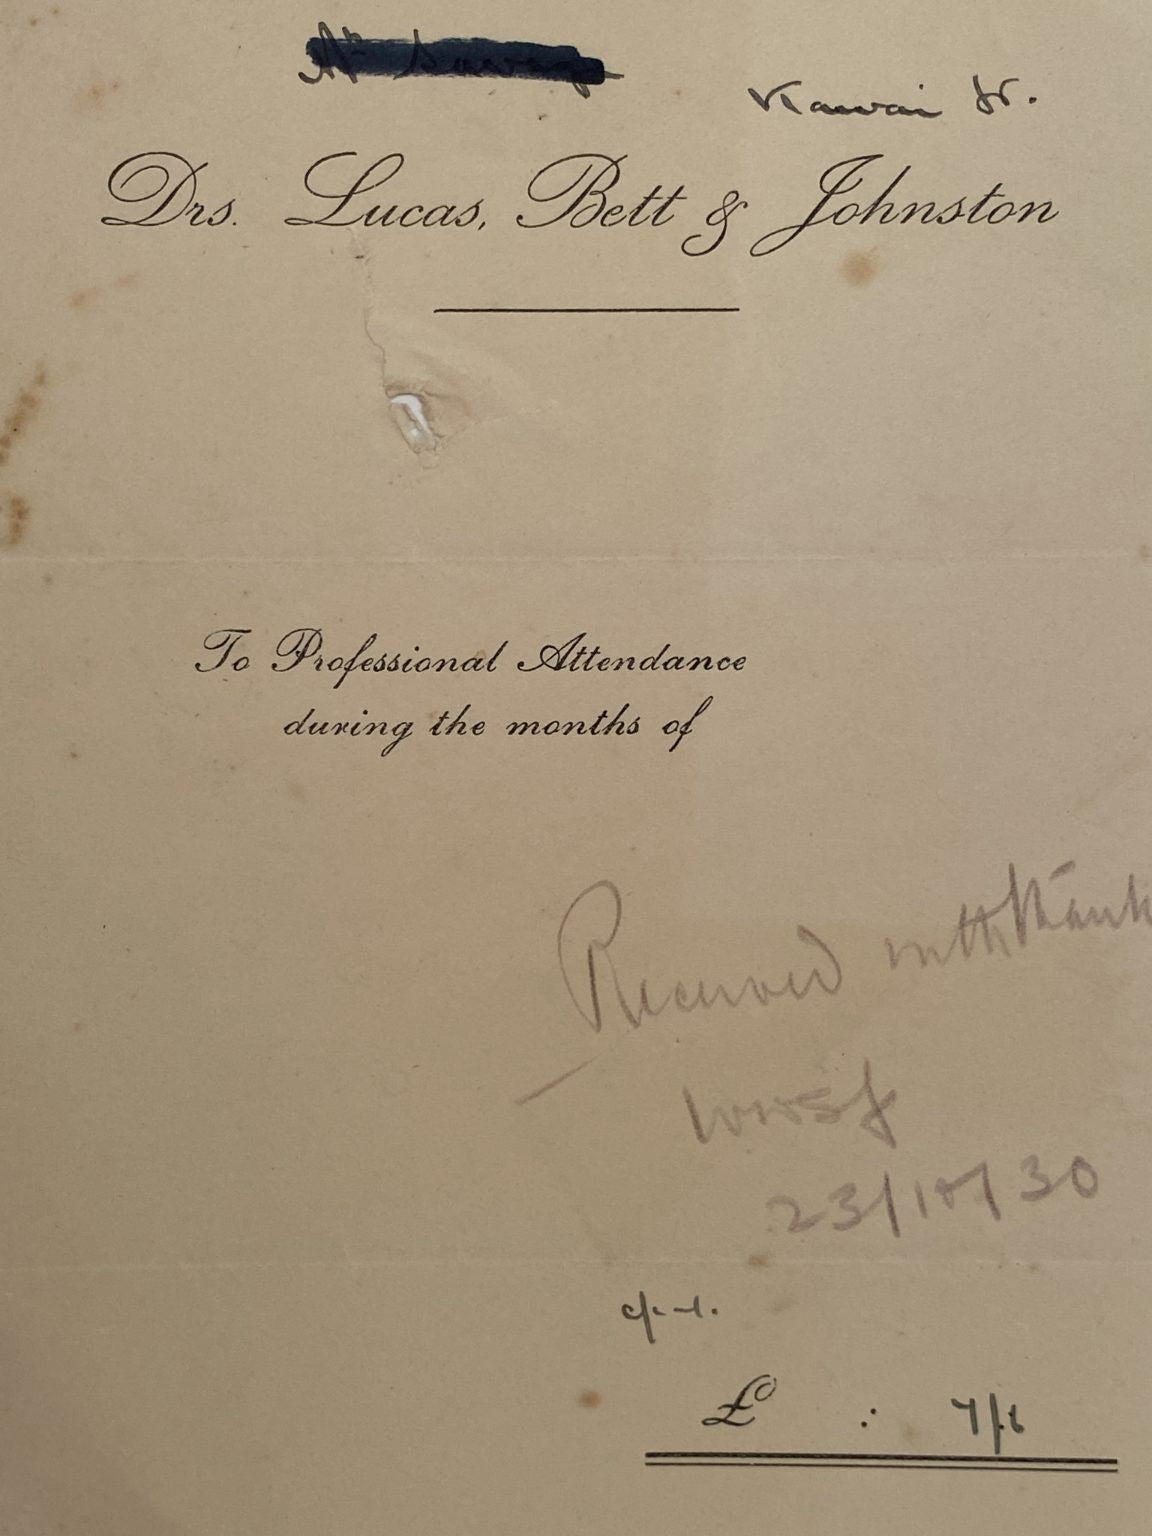 Mr Savage
Kawai St.
Drs. Lucas, Bett & Johnston
To Professional Attendance
during the months of
Received with thanks
23/10/30
£ : 7/6